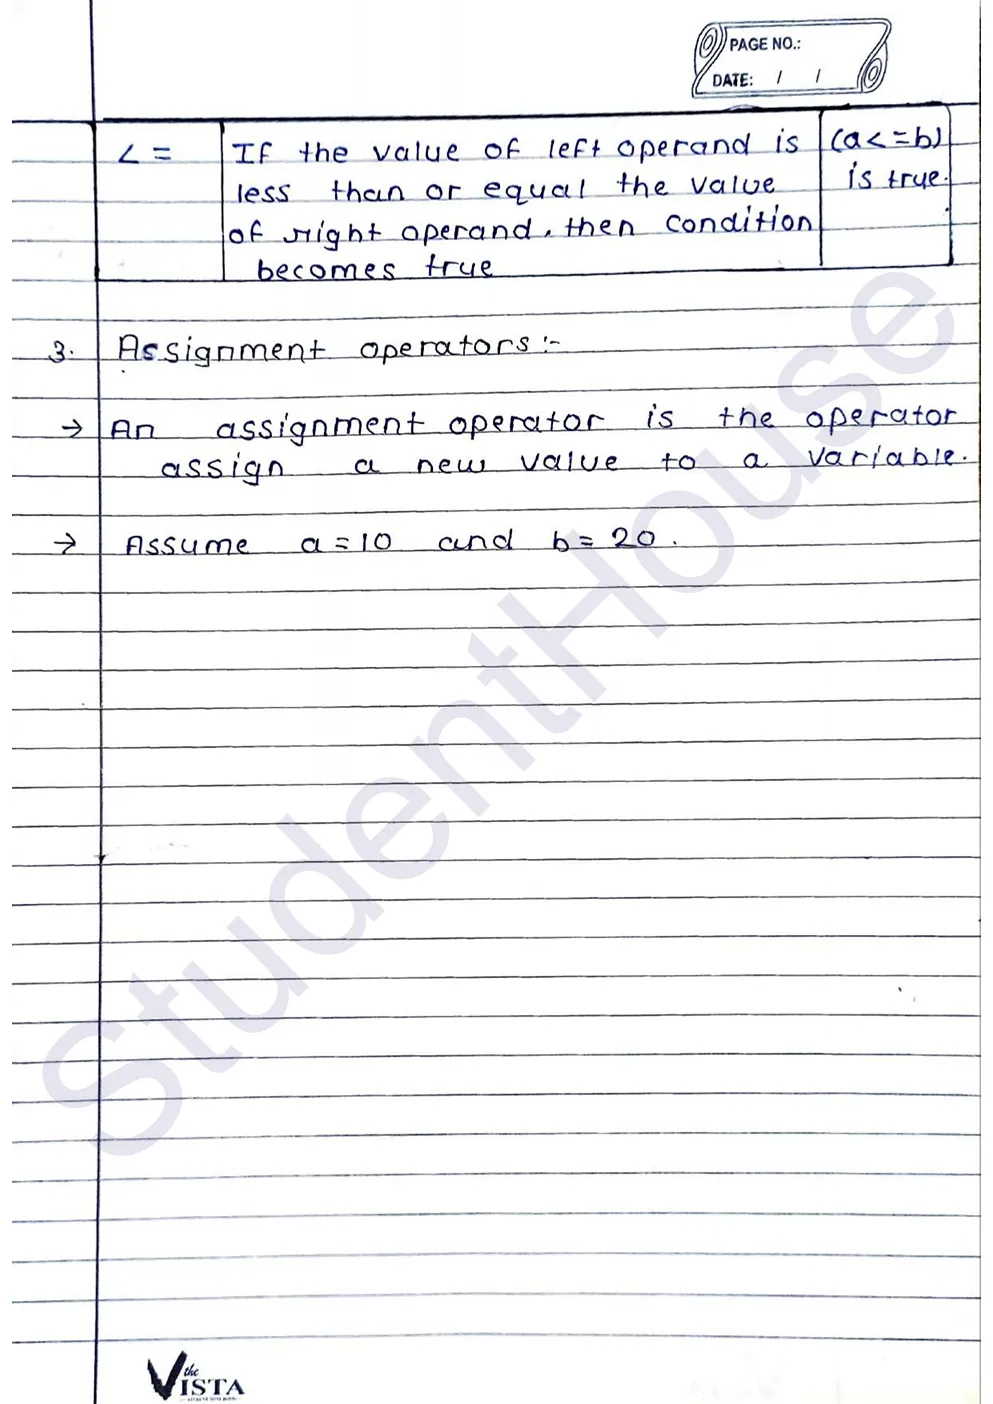 PAGE NO.:
DATE: / /
<= If the value of left operand is (a<=b)
less than or equal the value is true.
of right operand, then condition
becomes true
3. Assignment operators :-
→ An assignment operator is the operator
assign a new value to a variable.
→ Assume a=10 and b=20.
StudentHouse
the
VISTA